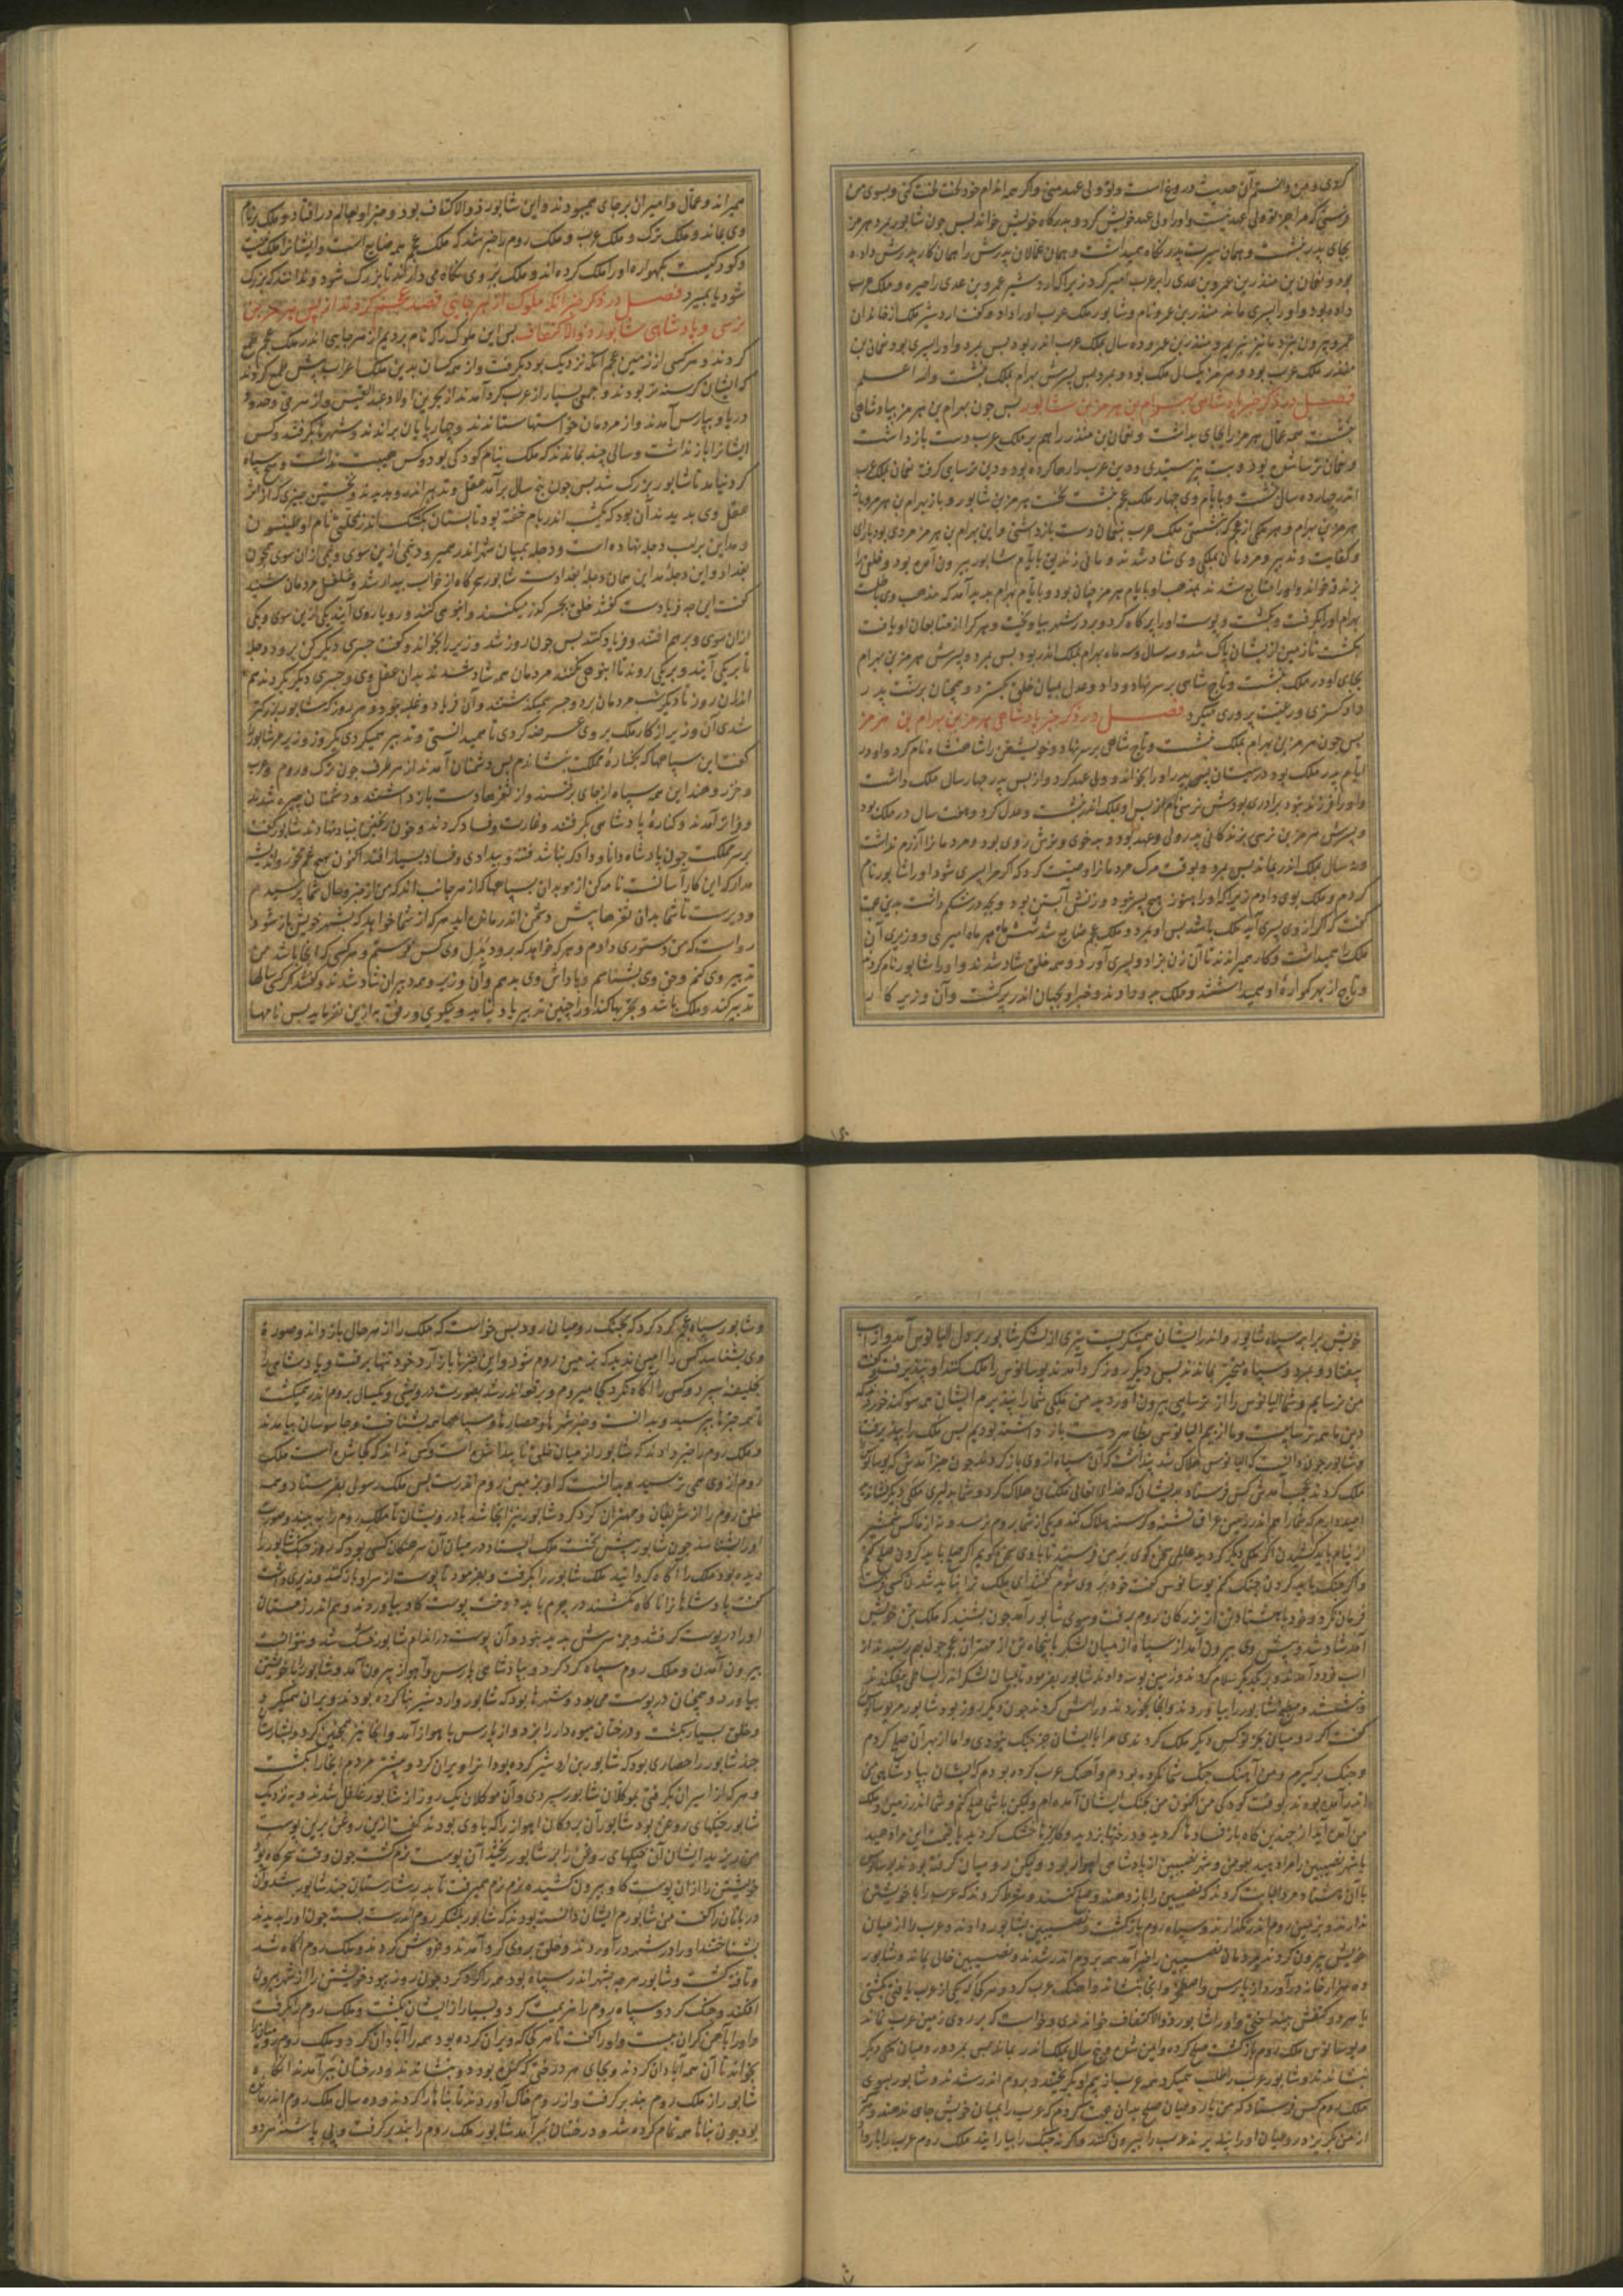 کردی و من دانستم آن حدیث دروغ است و تو ولی عهد منی و اگر همه اندام خود لخت لخت کنی و بسوی من
فرستی که مرا جز تو ولی عهد نیست و او را ولی عهد خویش کرد و بدرگاه خویش خواند پس چون شابور بمرد هرمز
بجای پدر بنشست و همان سیرت پدر نگاه میداشت و همان عمالان پدرش را همان کار پدرش داده
بود و نعمان بن منذر بن عمرو بن عدی را بر عرب امیر کرد زیرا که اردشیر عمرو بن عدی را حیره و ملک عرب
داده بود و او را پسری ماند منذر بن عمرو نام و شابور ملک عرب او را داد و گفت اردشیر ملک از خاندان
منذر ملک عرب بود و هرمز یکسال ملک بود و بمرد پس پسرش بهرام بملک بنشست والله اعلم
فصل در ذکر خبر پادشاهی بهرام بن هرمز بن شابور پس چون بهرام بن هرمز بپادشاهی
بنشست همه عمال هرمز را بجای بداشت و نعمان بن منذر را هم بر ملک عرب دست بازداشت
و نعمان ترسا شده بود و بت نپرستیدی و دین عرب رها کرده بود و دین ترسایی گرفته نعمان بملک عرب
اندر چهارده سال بنشست و بایام وی چهار ملک عجم بنشست نخست هرمز بن شابور و باز بهرام بن هرمز و باز
هرمز بن بهرام و هر ملکی از عجم که بنشستی ملک عرب بنعمان دست بازداشتی و این بهرام بن هرمز مردی بود با رای
و کفایت و تدبیر و مردمان بملکی وی شاد شدند و مانی زندیق بایام شابور بیرون آمده بود و خلق را
بزندقه خواند و او را متابع شدند بمذهب او بایام هرمز چنان بود و بایام بهرام پدید آمد که مذهب وی باطلست
بهرام او را بگرفت و بکشت و پوست او را پر کاه کرد و بر در شهر بیاویخت و هر که را از متابعان او یافت
بکشت تا زمین از ایشان پاک شد و سه سال و سه ماه بهرام بملک اندر بود پس بمرد و پسرش هرمز بن بهرام
بجای او در ملک بنشست و تاج شاهی بر سر نهاد و داد و عدل میان خلق بگسترد و همچنان بر سنت پدر
داد گستری و رعیت پروری میکرد فصل در ذکر خبر پادشاهی هرمز بن بهرام بن هرمز
پس چون هرمز بن بهرام بملک بنشست و تاج شاهی بر سر نهاد و خویشتن را شاهنشاه نام کرد و او در
ایام پدر ملک بود در سیستان پس پدر او را بخواند و ولی عهد کرد و از پس پدر چهار سال ملک داشت
و او را فرزند نبود برادری بودش نرسی نام از پس او بملک اندر نشست و عدل کرد و هفت سال در ملک بود
و پسرش هرمز بن نرسی بزندگانی پدر ولی عهد بود و بدخوی و ترش روی بود و مردمان را آزرم نداشت
کردم و ملک بوی دادم زیرا که او را هنوز هیچ پسر نبود و زنش آبستن بود و بچه در شکم داشت بدین جهت
گفت که اگر از وی پسری آید ملک باشد پس او بمرد و ملک عجم ضایع شد شش ماه هر ماه امیری و وزیری آن
ملک همیداشت و کار همیراندند تا آن زن بزاد و پسری آورد و همه خلق شاد شدند و او را شابور نام کردند
و تاج از بهر گهواره او همیداشتند و ملک بدو دادند و خبر او بجهان اندر پرگشت و آن وزیر کار
همیراند و عمال و امیران بر جای همی بودند و این شابور ذوالاکتاف بود و خبر او بعالم در افتاد و ملک بنام
وی بماند و ملک ترک و ملک عرب و ملک روم را خبر شد که ملک عجم همه ضایع است و ایشان را ملک نیست
و کودکیست بگهواره او را ملک کرده اند و ملک بر وی نگاه می دارند تا بزرگ شود و ندانند که بزرگ
شود یا بمیرد فصل در ذکر خبر آنکه ملوک از هر جایی قصد عجم کردند از پس هرمز بن
نرسی و پادشاهی شابور ذوالاکتاف پس این ملوک را که نام بردیم از هر جایی اندر ملک عجم طمع
کردند و هر کسی از زمین عجم آنکه نزدیک بود بگرفت و از همه کسان بدین ملک اعراب بیش طمع کردند
که ایشان گرسنه تر بودند و جمعی بسیار از عرب گرد آمدند از بحرین و اولاد عبد القیس و از هر سوی
دریا و بپارس آمدند و از مردمان خواستها ستدند و چهارپایان براندند و شهرها بگرفتند و کس
ایشان را باز نداشت و سالی چند بماندند که ملک بنام کودکی بود و کس هیبت نداشت و هیچ سپاه
گرد نیامد تا شابور بزرگ شد پس چون پنج سال برآمد عقل و تدبیر اندرو بدیدند و نخستین چیزی که از اثر
عقل وی بدیدند آن بود که یکشب اندر بام خفته بود تابستان بکوشک اندر بمحلتی نام او طیسون
و مداین بر لب دجله نهاده است و دجله بمیان شهر اندر همیرود نیمی ازین سوی و نیمی از آن سوی همچون
بغداد و این دجله مداین همان دجله بغدادست شابور سحرگاه از خواب بیدار شد و غلغل مردمان شنید
گفت این چه فریادست گفتند خلق بجسر گذر میکنند و انبوهی کنند و رویاروی آیند یکی ازین سوی و یکی
از آن سوی و برهم افتند و فریاد کنند پس چون روز شد وزیر را بخواند و گفت جسری دیگر کن بر رود دجله
تا بر یکی آیند و بر یکی روند تا انبوهی نکنند مردمان همه شاد شدند بدان عقل وی و جسری دیگر بکردند هم
اندر آن روز تا دیگر شب مردمان بر دو جسر همیگذشتند و آن فریاد و غلبه نبود و هر روز که شابور بزرگتر
شدی آن وزیر از کار ملک بر وی عرضه کردی تا همیدانستی و تدبیر همیکردی یکروز وزیر مر شابور را
گفت این سپاهها که بکناره مملکت بنشاندم پس دشمنان آمدند از هر طرف چون ترک و روم و عرب
و خزر و هند این همه سپاه از جای برفتند و از ثغرها دست بازداشتند و دشمنان چیره شدند
و فراز آمدند و کناره پادشاهی بگرفتند و غارت و فساد کردند و خون ریختن بنیاد نهادند شابور گفت
بر سر مملکت چون پادشاه دانا و دادگر نباشد فتنه و بیدادی و فساد بسیار افتد اکنون هیچ غم مخور و اندیشه
مدار که این کار آسانست نامه کن از موبدان بسپاهها که از هر جانب اند که من از خبر و حال شما بپرسیدم
و دیرست تا شما بدان ثغرها پیش دشمن اندر مانده اید هر که از شما خواهد که بشهر خویش باز شود
رواست که من دستوری دادم و هر که خواهد که برود بدل وی کس بفرستم و هر کسی که آنجا باشد من
تدبیر وی کنم و حق وی بشناسم و پاداش وی بدهم و آن وزیر و همه دبیران شاد شدند و گفتند اگر کسی سالها
تدبیر کند و ملک باشد و تجربها کند او را چنین تدبیر یاد نیاید و نیکویی و رفق به ازین نفرماید پس نامها
خویش برابر سپاه شابور و اندر ایشان همینگریست تیری از لشکر شابور بر دل الیانوس آمد و از اسب
بیفتاد و بمرد و سپاه متحیر بماندند پس دیگر روز گرد آمدند یوسانوس را ملک کنند او نپذیرفت و گفت
من ترسایم و شما الیانوس را از ترسایی بیرون آوردید من ملکی شما را نپذیرم ایشان همه سوگند خوردند که
دین ما همه ترساییست و ما از بیم الیانوس بظاهر دست بازداشته بودیم پس ملک را بپذیرفت
و شابور چون دانست که الیانوس هلاک شد پنداشت که آن سپاه از وی باز گردند چون خبر آمدش که یوسانوس را
ملک کردند عجب آمدش کس فرستاد بدیشان که خدای تعالی ملکتان هلاک کرد و شما بدلیری ملکی دیگر نشاندید
امیدوارم که شما را هم اندر زمین عراق تشنه و گرسنه هلاک کند و یکی از شما بروم نرسد و نه از ما کس شمشیر
از نیام باید کشیدن اگر ملکی دیگر کردید عاقلی سخن گوی بر من فرستید تا با وی سخن گویم اگر صلح باید کردن صلح کنم
و اگر جنگ باید کردن جنگ کنم یوسانوس گفت خود بر وی شوم گفتند ای ملک ترا نباید شدن کسی فرست
فرمان نکرد و خود با هشتاد تن از بزرگان روم برفت و سوی شابور آمد چون بشنید که ملک بتن خویش
آمد شاد شد و پیش وی بیرون آمد از سپاه از میان لشکر با پنجاه تن از مهتران عجم چون بهم رسیدند از
اسب فرود آمدند و بر یکدیگر سلام کردند و زمین بوسه دادند شابور بفرمود تا میان لشکر اندر بساطی بیفکندند
و بنشستند و طعام شابور را بیاوردند و آنجا بخوردند و رامش کردند چون دیگر روز بود شابور مر یوسانوس را
گفت اگر رومیان بجز تو کس دیگر ملک کردندی مرا با ایشان جز جنگ نبودی و اما از بهر آن صلح کردم
و جنگ بر گیرم و من آهنگ جنگ شما نکرده بودم و آهنگ عرب کرده بودم که ایشان بپادشاهی من
اندر آمده بودند بوقت کودکی من اکنون من بجنگ ایشان آمده ام ولیکن با شما صلح کنم و شما اندر زمین و ملک
من آمده اید از چندین گاه باز فسادها کردید و درختها بریدید و کاریزها خشک کردید یا قیمت این مرا دهید
یا شهر نصیبین را مرا دهید بعوض و شهر نصیبین از پادشاهی اهواز بود ولیکن رومیان گرفته بودند یوسانوس
با آن هشتاد مرد اجابت کردند که نصیبین را باز دهند و صلح کنند و شرط کردند که عرب را با خویشتن
ندارند و بزمین روم اندر نگذارند و سپاه روم باز گشت و نصیبین بشابور دادند و عرب را از میان
خویش بیرون کردند مردمان نصیبین را خبر آمد همه بروم اندر شدند و نصیبین خالی بماند و شابور
ده هزار خانه در آورد از پارس و اصطخر و آنجا بنشاند و آهنگ عرب کرد و هر کجا که یکی از عرب یافتی بکشتی
یا هر دو کتفش بینداختی و او را شابور ذوالاکتاف خواندندی و خواست که بر روی زمین عرب نماند
و یوسانوس ملک روم باز گشت صلح کرده و این شرط و پنج سال بملک اندر بماند پس بمرد و رومیان یکی دیگر
بنشاندند و شابور عرب را طلب همیکرد و همه عرب از بیم او بگریختند و بروم اندر شدند و شابور بسوی
ملک روم کس فرستاد که من با رومیان صلح بدان جهت کردم که عرب را بمیان خویش جای ندهند و هر که
از من بگریزد رومیان او را نپذیرند عرب را بیرون کنند و اگر نه جنگ را بیارایند ملک روم عرب را باز داد
و شابور سپاه عجم گرد کرد که بجنگ رومیان رود پس خواست که ملک را از هر حال باز داند و صورة
وی بشناسد کس را امین ندید که بزمین روم شود و این خبرها باز آرد خود تنها برفت و پادشاهی را
بخلیفه بسپرد و کس را آگاه نکرد کجا میروم و بروم اندر شد بصورت درویشی و یکسال بروم اندر همیگشت
تا همه خبرها بپرسید و بدانست و خبر شهرها و حصارها و سپاهها همه بشناخت و جاسوسان بیامدند
و ملک روم را خبر دادند که شابور از میان خلق ناپیدا شده است و کس نداند که کجا شده است ملک
روم از وی همی ترسید و بدانست که او بزمین روم اندرست پس ملک رسولی بفرستاد و همه
خلق روم را از شریفان و مهتران گرد کرد و شابور نیز آنجا شد با درویشان تا ملک روم را ببیند و صورت
او را بشناسد چون شابور پیش تخت ملک ایستاد در میان آن سرهنگان کسی بود که روز جنگ شابور را
دیده بود ملک را آگاه گردانید ملک شابور را بگرفت و بفرمود تا پوست از سر او باز کنند وزیری داشت
گفت پادشاهان را ناگاه نکشند در چرم باید دوخت پوست گاو بیاوردند و هم اندر زمستان
او را در پوست گرفتند و جز سرش پدید نبود و آن پوست در اندام شابور خشک شد و نتوانست
بیرون آمدن و ملک روم سپاه گرد کرد و بپادشاهی پارس و اهواز بیرون آمد و شابور را با خویشتن
بیاورد و همچنان در پوست می بود و شهرها بود که شابور و اردشیر بنا کرده بودند ویران همیکرد
و خلق بسیار بکشت و درختان میوه دار را ببرید و از پارس باهواز آمد و آنجا نیز همچنین کرد و بشارستان
جند شابور را حصاری بود که شابور بن اردشیر کرده بود آنرا ویران کرد و بیشتر مردم آنجا را بکشت
و هر که را از اسیران بگرفتی بموکلان شابور سپردی و آن موکلان یک روز از شابور غافل شدند و بنزدیک
شابور خیکهای روغن بود شابور آن بردگان اهواز را که با وی بودند گفت ازین روغن برین پوست
من ریزید ایشان آن خیکهای روغن را بر شابور ریختند آن پوست نرم گشت چون وقت سحرگاه بود
خویشتن را از آن پوست گاو بیرون کشید و نرم نرم همیرفت تا بدر شارستان جند شابور شد و آن
دربانان را گفت من شابورم ایشان دانسته بودند که شابور بلشکر روم اندرست بسته چون او را بدیدند
بشناختند او را در شهر در آوردند و خلق بر وی گرد آمدند و خروش کردند و ملک روم آگاه شد
و تافته گشت و شابور هر چه بشهر اندر سپاه بود همه را گرد کرد چون روز ببود خویشتن را از شهر بیرون
افکند و جنگ کرد و سپاه روم را هزیمت کرد و بسیار از ایشان بکشت و ملک روم را بگرفت
و او را بآهن گران ببست و او را گفت تا هر کجا که ویران کرده بود همه را آبادان کرد و ملک روم رومیان را
بخواند تا آن همه آبادان کردند و بجای هر درختی که کنده بود دو بنشاندند و درختان ببر آمدند آنگاه
شابور از ملک روم بند بر گرفت و از روم خاک آوردند تا بناها کردند و ده سال ملک روم اندر بند
بود چون بناها همه تمام کرده شد و درختان ببر آمد شابور ملک روم را بند بر گرفت و پی پاشنه هر دو